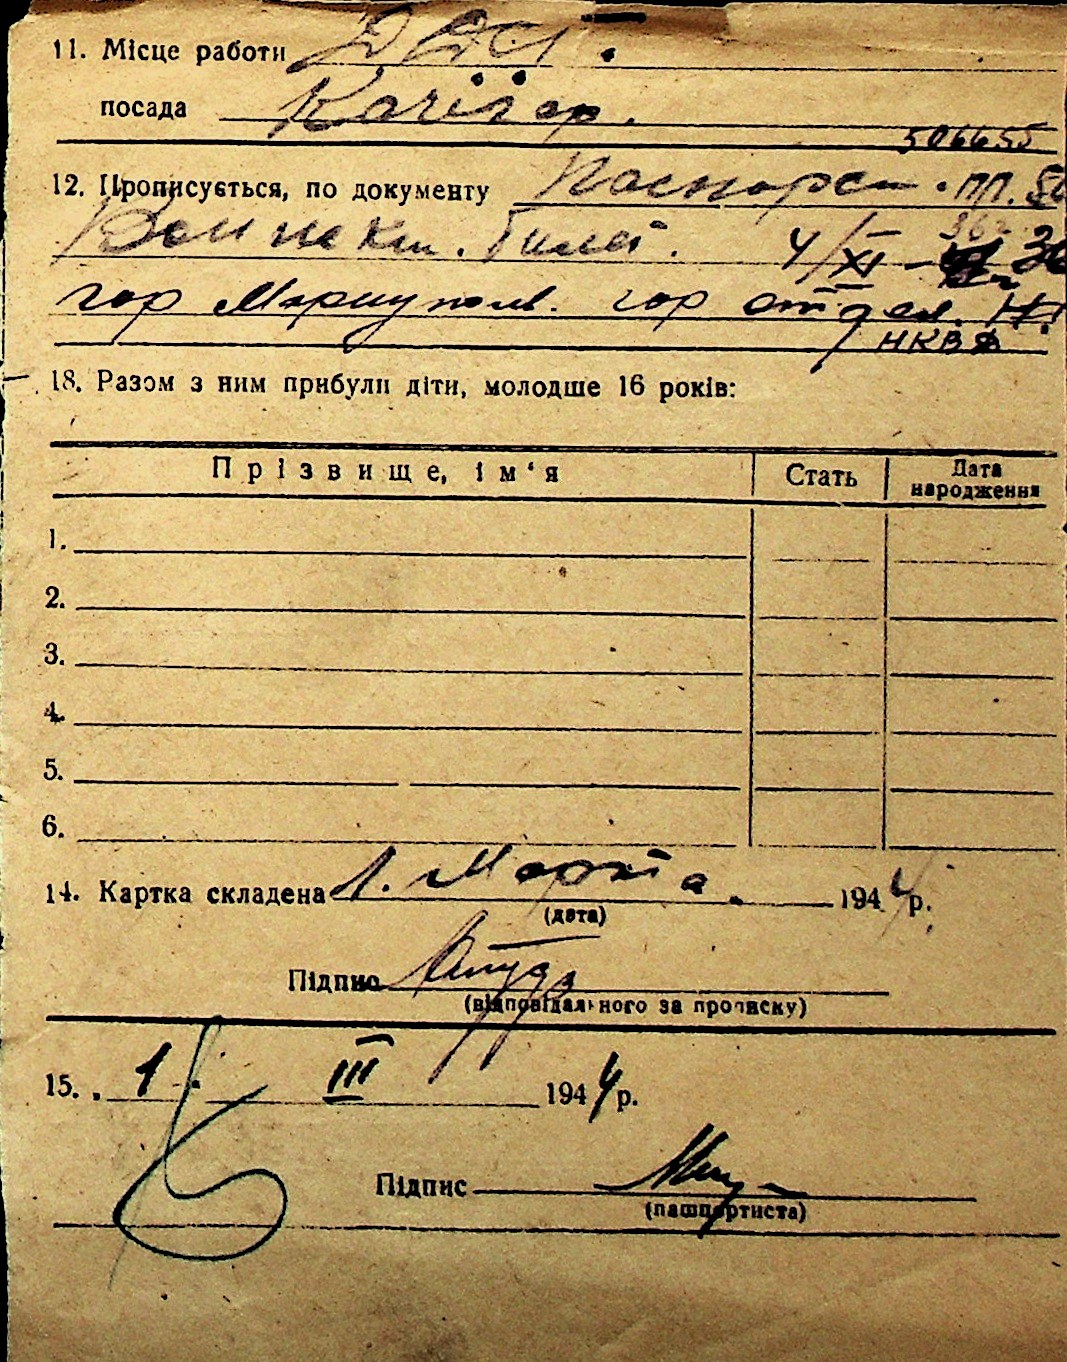 11. Місце работи
посада Качегар.
506655
12. Прописується, по документу Паспорт. ПП.
билет. 4/XI 36
гор Мариуполь. гор отдел.
НКВД
18. Разом з ним прибули діти, молодше 16 років:
Прізвище, ім'я Стать Дата народження
1.
2.
3.
4.
5.
6.
14. Картка складена 1. Марта. 1944 р.
(дата)
Підпис
(відповідального за прописку)
15. 1. III 1944 р.
Підпис
(пашпортиста)